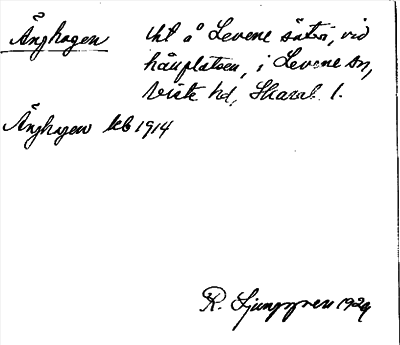 Änghagen tkt å Levene sätra, vid
håuplatsen, i Levene sn,
Viste hd, Skarab. l.
Änghagen kb 1914
R. Ljunggren 1929